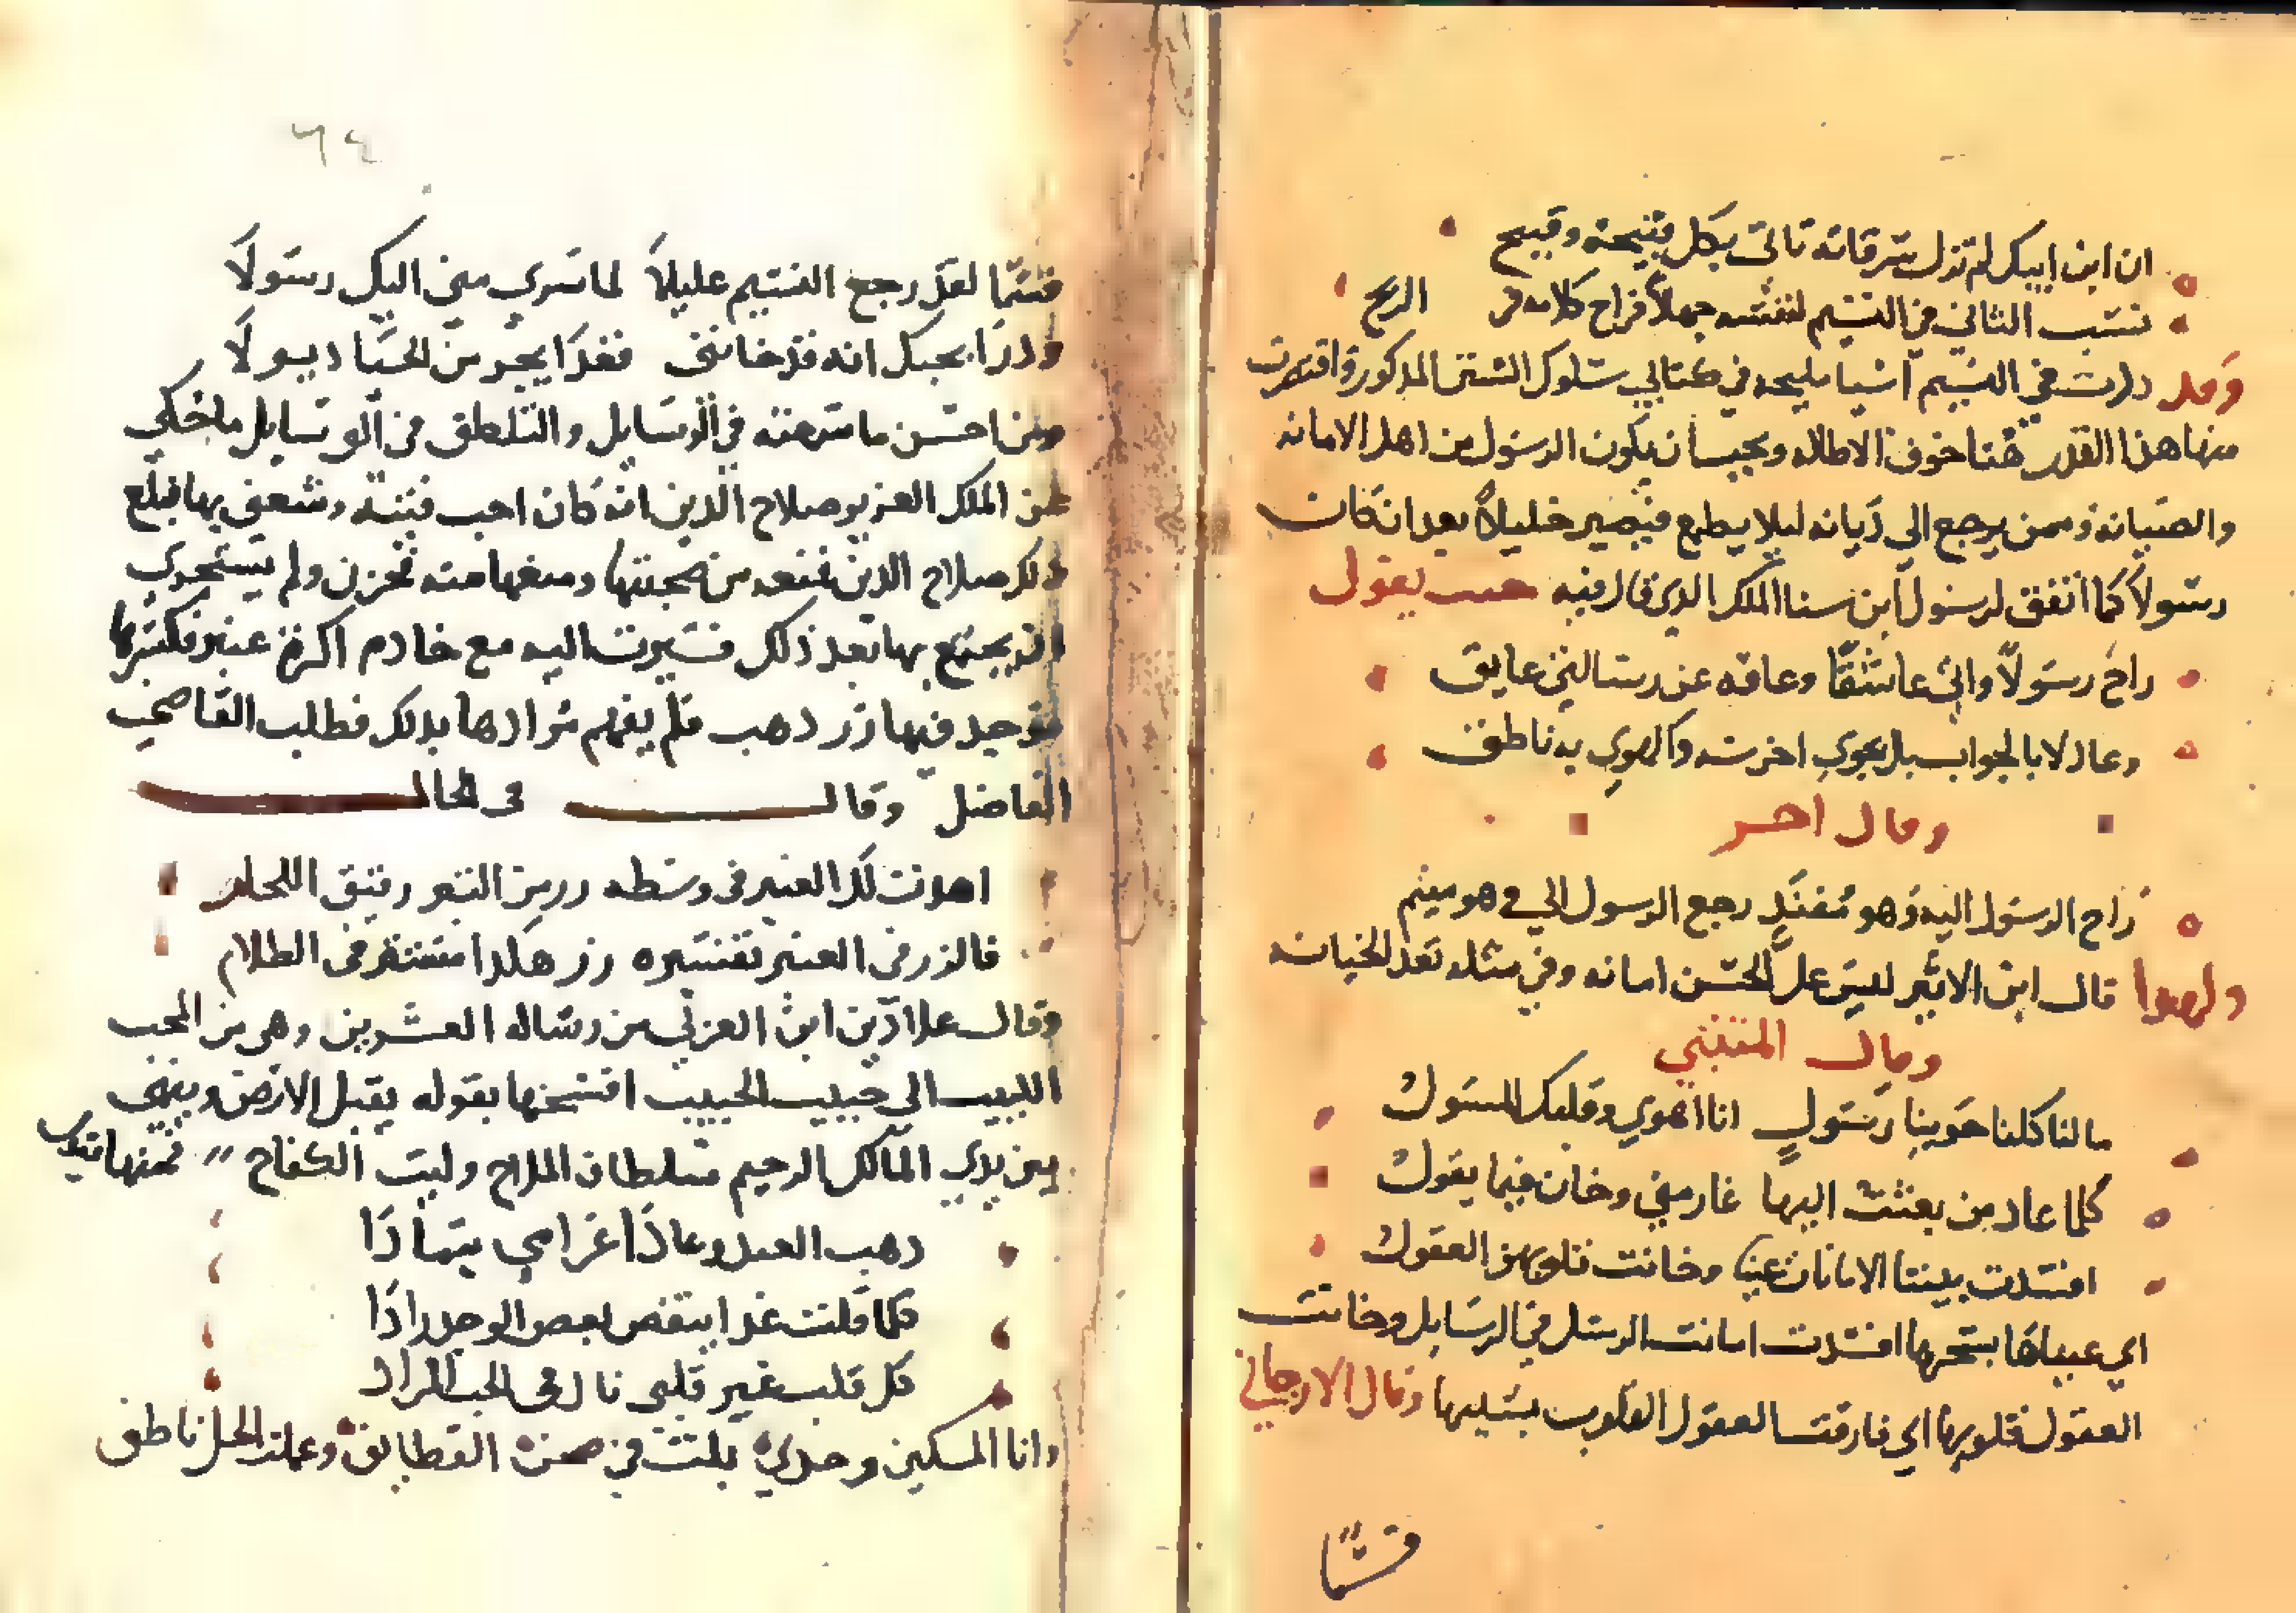 ان ابن ايبك لم تزل سرقاته تاتي بكل قبيحة وقبيح
نسب الثاني في النسيم لنفسه جهلا فراح كلامه في الريح
وقد ذكرت في النسيم اشيا مليحه في كتابي سلوك السنن المذكور واقتصرت
منها هذا القدر هنا خوف الاطاله ويجب ان يكون الرسول من اهل الامانه
والصيانه وممن يرجع الي ديانه ليلا يطمع فيصير خليلا بعد ان كان
رسولا كما اتفق لرسول ابن سنا الملك الذي قال فيه حيث يقول
راح رسولا واتي عاشقا وعاقه عن رسالتي عايق
وعاد لا بالجواب بل بجوي اخرسه والهوي به ناطق
وقال اخر
راح الرسول اليه وهو مفند رجع الرسول الي وهو متيم
ولهذا قال ابن الاثير ليس علي الحسن امانه وفي مثله تعذر الخيانه
وقال المتنبي
ما لنا كلنا جو يا رسول انا اهوي وقلبك المتبول
كلما عاد من بعثت اليها غار مني وخان فيما يقول
افسدت بيننا الامانات عيناها وخانت قلوبهن العقول
اي عيناها بسحرها افسدت امانت الرسل في الرسايل وخانت
العقول قلوبها اي فارقت العقول القلوب بسببها وقال الارجاني
قسما
٦٤
قسما لقد رجع النسيم عليلا لما سري مني اليك رسولا
ودرا بحبك انه قد خانني فغدا يجر من الحيا ذيولا
ومن احسن ما سمعته في الرسايل والتلطف في الوسايل ما حكي
عن الملك العزيز صلاح الدين انه كان احب قينه وشغف بها فبلغ
ذلك صلاح الدين فمنعه من صحبتها ومنعها منه فحزن ولم يستجري
ان يجتمع بها بعد ذلك فسيرت اليه مع خادم اكرة عنبر فكسرها
فوجد فيها زر ذهب فلم يفهم مرادها بذلك فطلب القاضي
الفاضل وقال في الحال
اهدت لك العنبر في وسطه زر من التبر رقيق اللحام
فالزر في العنبر تفسيره زر هكذا مستترا في الظلام
وقال علا الدين ابن العزي من رساله العشرين وهي من المحب
اللبيب الي حبيب الحبيب افتتحها بقوله يقبل الارض وينهي
بين يدي المالك الرحيم سلطان الملاح وليث الكفاح فمنها قوله
ذهب العيد وعادا غرامي يتمادا
كلما قلت غدا ينقص بعض الوجد زادا
كل قلب غير قلبي نال في الحب المراد
وانا المسكين وحدي بلت في صحن القطايف وعملت الحل ناطف